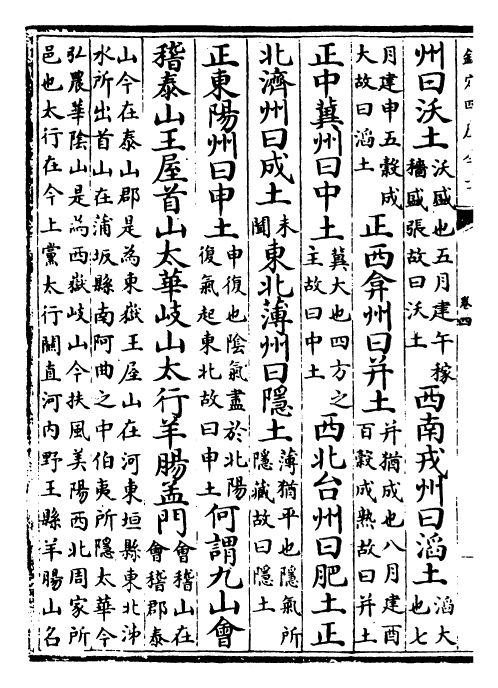 欽定四庫全書
卷四
州曰沃土沃盛也五月建午稼穡盛張故曰沃土西南戎州曰滔土滔大也七
月建申五穀成大故曰滔土正西弇州曰并土并猶成也八月建酉百穀成熟故曰并土
正中冀州曰中土冀大也四方之主故曰中土西北台州曰肥土正
北濟州曰成土未聞東北薄州曰隱土薄猶平也隱氣所隱藏故曰隱土
正東陽州曰申土申復也陰氣盡於北陽復氣起東北故曰申土何謂九山會
稽泰山王屋首山太華岐山太行羊腸孟門會稽山在會稽郡泰
山今在泰山郡是為東嶽王屋山在河東垣縣東北泲
水所出首山在蒲坂縣南阿曲之中伯夷所隱太華今
弘農華陰山是為西嶽岐山今扶風美陽西北周家所
邑也太行在今上黨太行關直河內野王縣羊腸山名